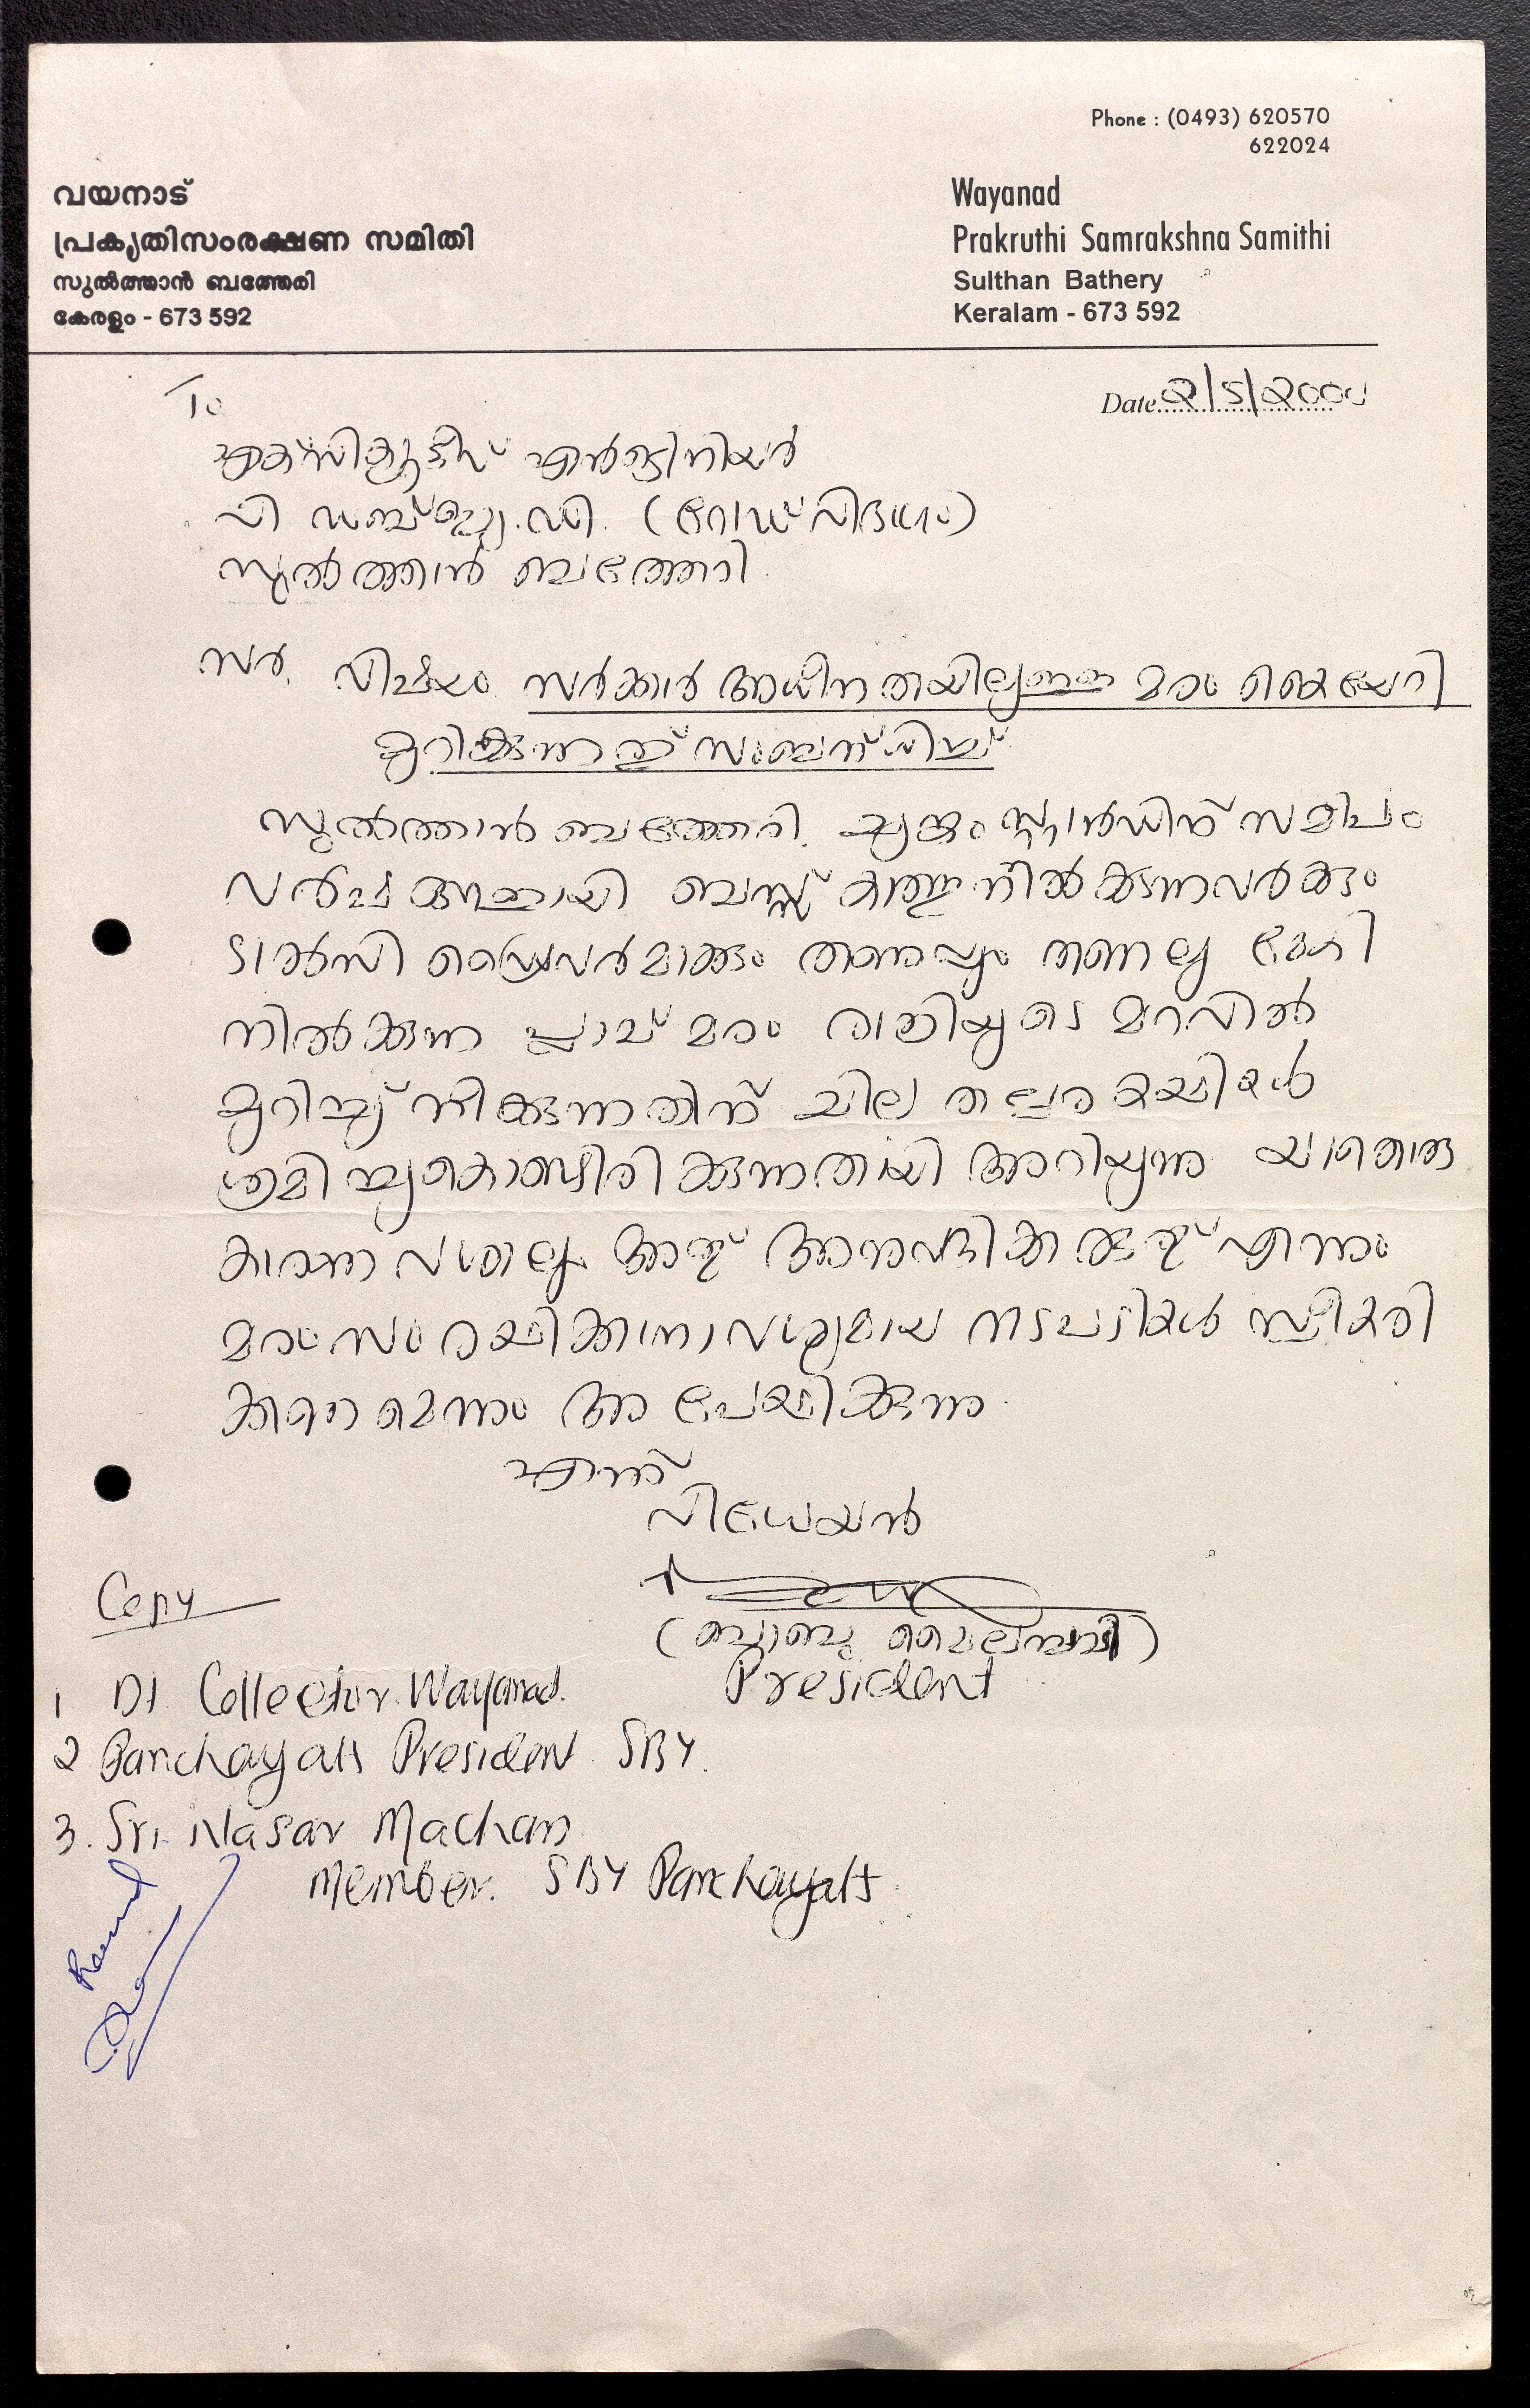 Phone : (0493) 620570
622024
വയനാട്
പ്രകൃതിസംരക്ഷണ സമിതി
സുൽത്താൻ ബത്തേരി
കേരളം - 673 592
Wayanad
Prakruthi Samrakshna Samithi
Sulthan Bathery
Keralam - 673 592
Date 2/5/2000
To
എക്സിക്യൂട്ടീവ് എൻജിനിയർ
പി ഡബ്ല്യു.ഡി. (റോഡ് വിഭാഗം)
സുൽത്താൻ ബത്തേരി
സർ, വിഷയം സർക്കാർ അധീനതയിലുള്ള മരം കൈയേറി
മുറിക്കുന്നത് സംബന്ധിച്ച്
സുൽത്താൻ ബത്തേരി. ചുങ്കം സ്റ്റാൻഡിന് സമീപം
വർഷങ്ങളായി ബസ്സ് കാത്തുനിൽക്കുന്നവർക്കും
ടാക്സി ഡ്രൈവർമാർക്കും തണുപ്പും തണലു മേകി
നിൽക്കുന്ന പ്ലാവ് മരം രാത്രിയുടെ മറവിൽ
മുറിച്ച് നീക്കുന്നതിന് ചില തല്പരകക്ഷികൾ
ശ്രമിച്ചുകൊണ്ടിരിക്കുന്നതായി അറിയുന്നു യാതൊരു
കാരണ വശാലും അത് അനുവദിക്കരുത് എന്നും
മരം സംരക്ഷിക്കാനാവശ്യമായ നടപടികൾ സ്വീകരി
ക്കണമെന്നും അപേക്ഷിക്കുന്നു
എന്ന്
വിധേയൻ
(ബാബു മൈലമ്പാടി)
President
Copy
1 Dt. Collector Wayanad.
2 Panchayatt President SBY.
3. Sri. Nasar Machan
Member. SBY Panchayatt